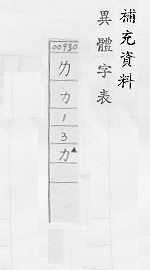 補充資料
異體字表
00930
力
力
1
3
力▲